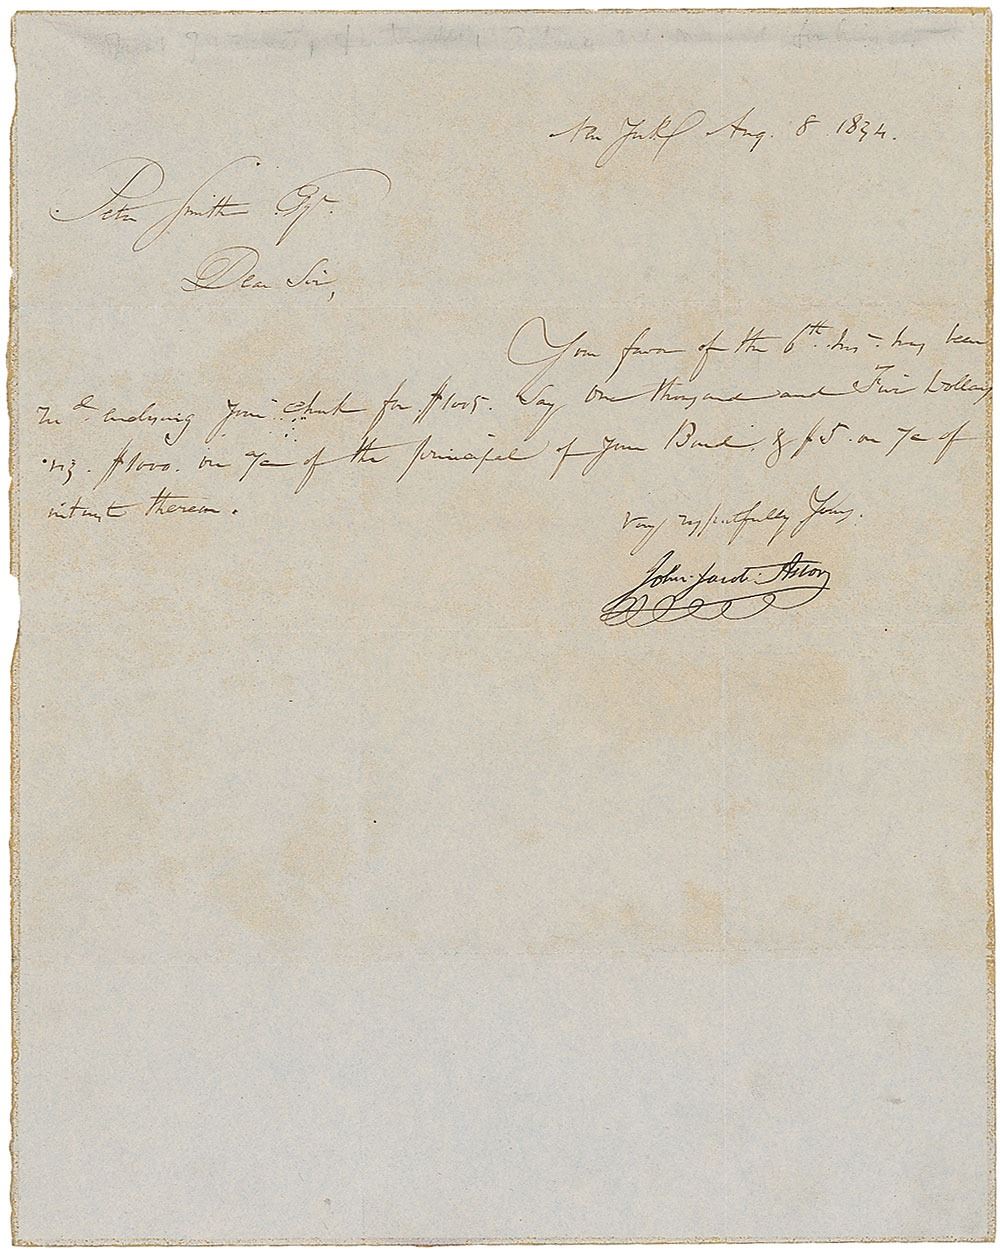 New York Aug. 8 1834.
Peter Smith Esqr.
Dear Sir,
Your favor of the 6th. inst. has been
recd enclosing your check for $1005. Say One thousand and Five Dollars
viz. $1000. on a/c of the principal of your Bond & $5. on a/c of
interest thereon.
Very respectfully Yours.
John Jacob Astor